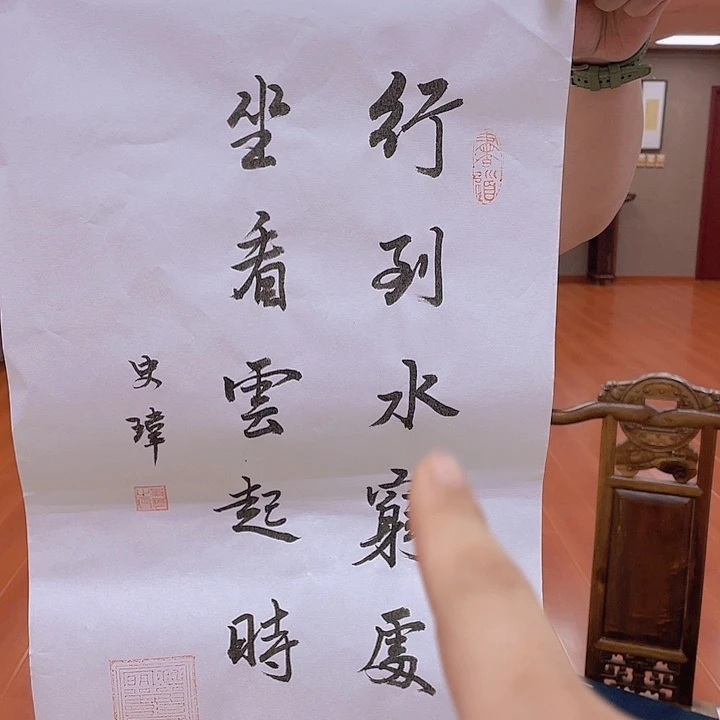 行到水窮處
坐看雲起時
史瑋
書道